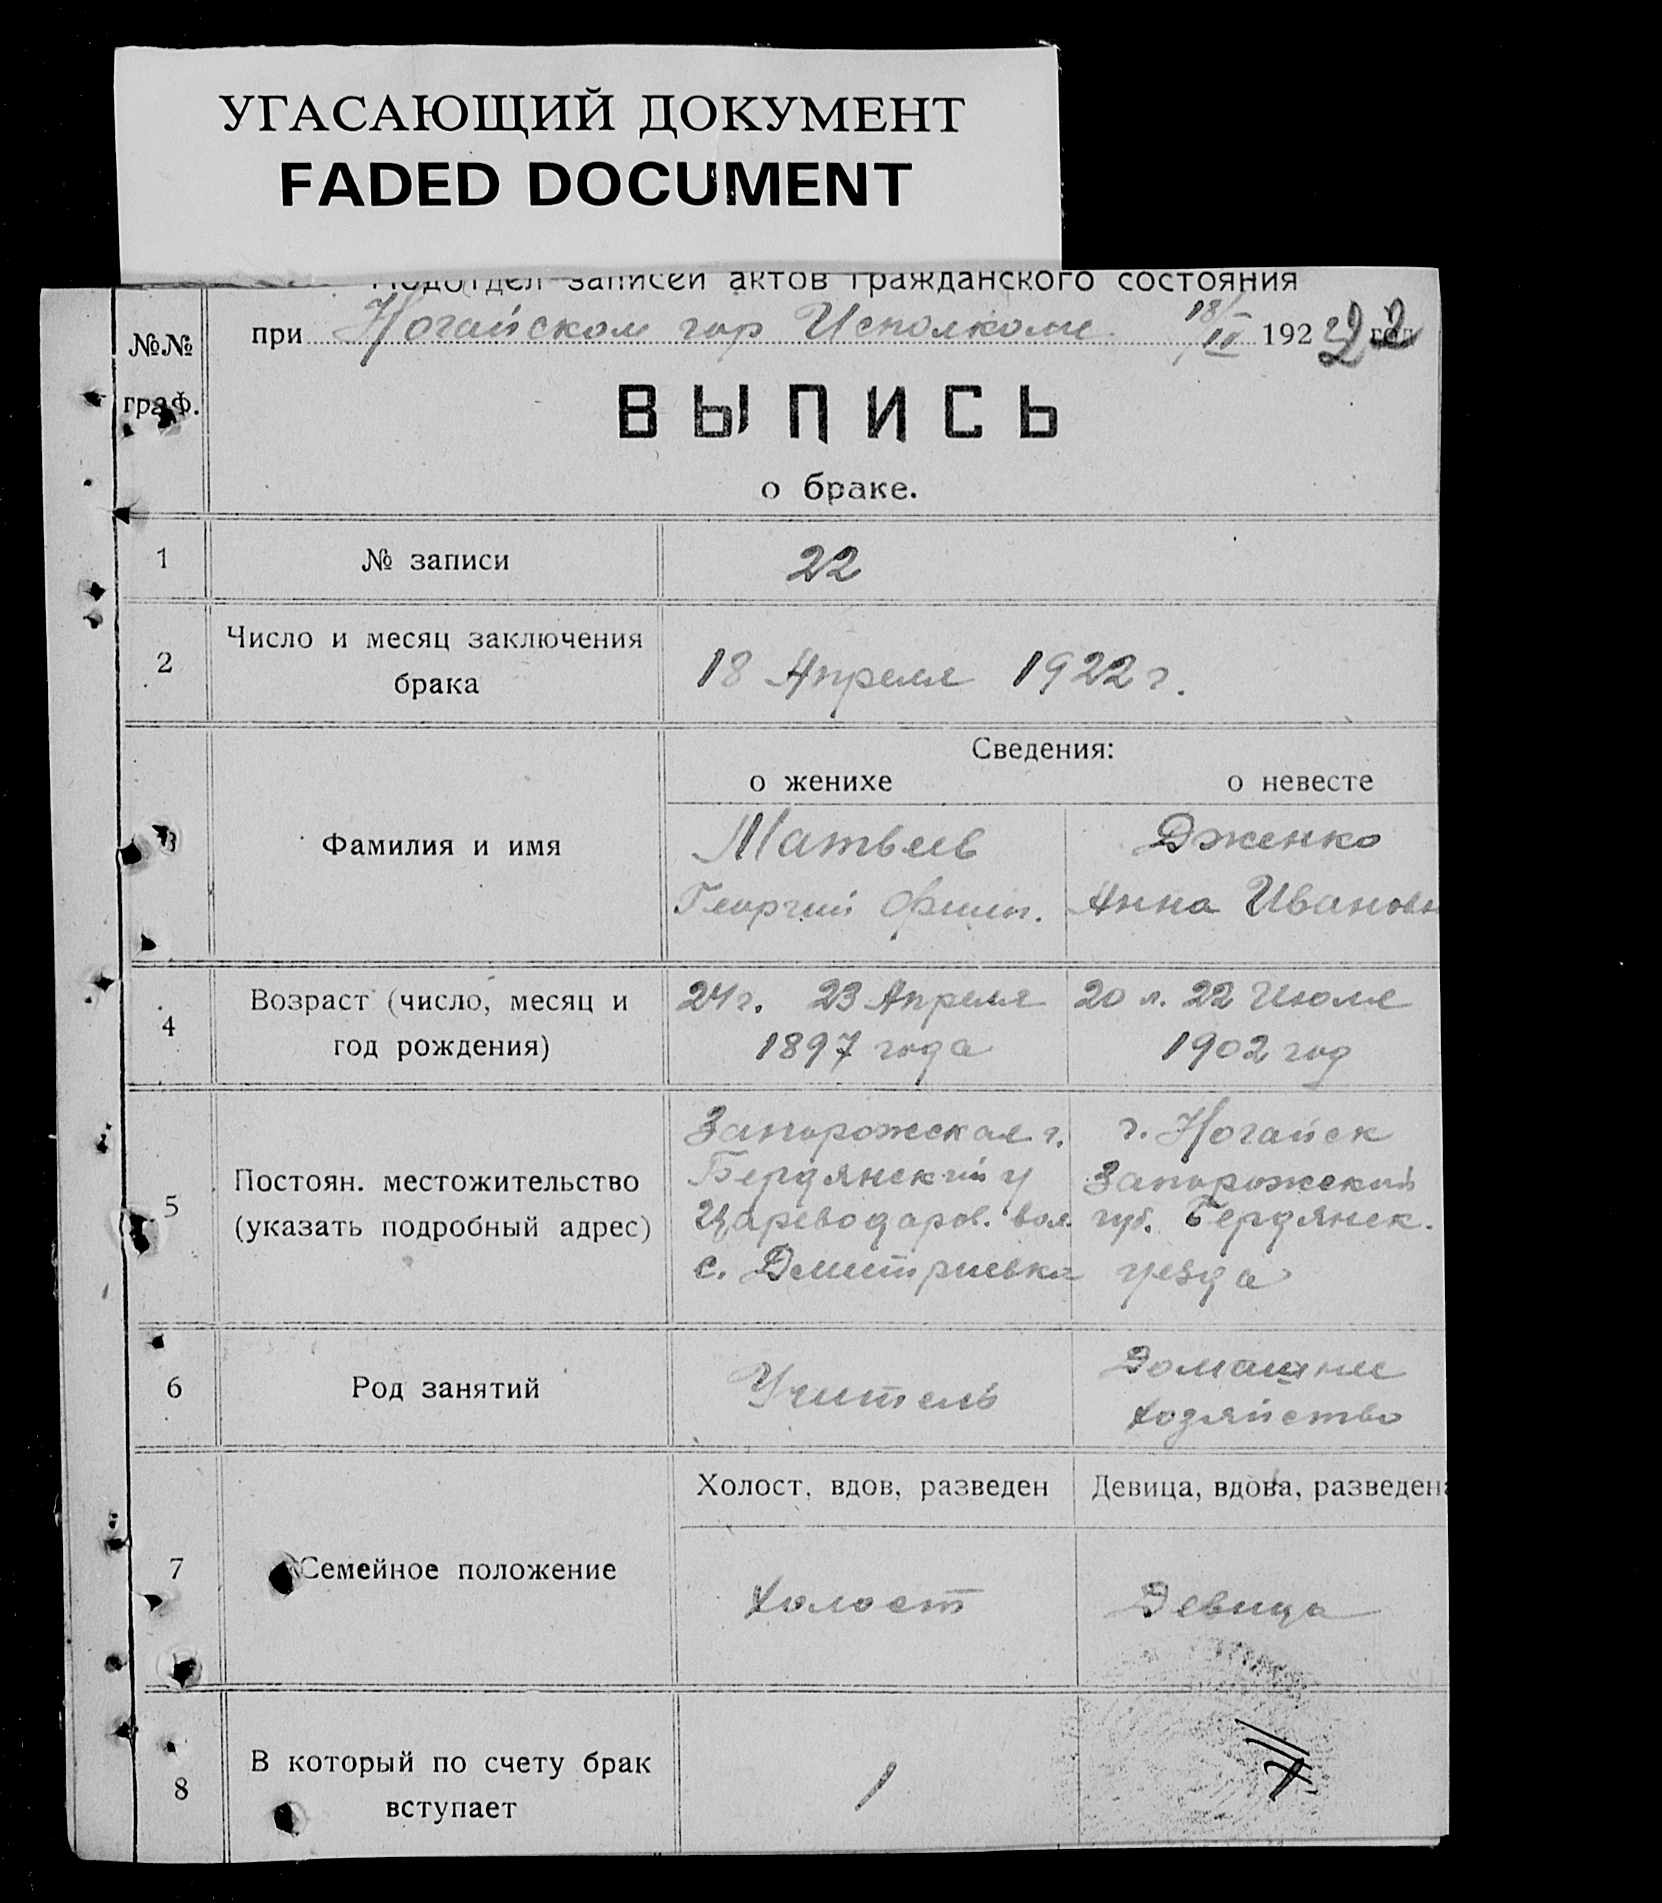 УГАСАЮЩИЙ ДОКУМЕНТ
FADED DOCUMENT
Подотдел записей актов гражданского состояния
№№
граф.
при Ногайском гор Исполкоме 18/IV 1922 год
ВЫПИСЬ
о браке.
1 № записи 22
2 Число и месяц заключения
брака
18 Апреля 1922 г.
Сведения:
о женихе о невесте
3 Фамилия и имя
Матвеев
Георгий Филип.
Дженко
Анна Ивановн
4 Возраст (число, месяц и
год рождения)
24 г. 23 Апреля
1897 года
20 л. 22 Июля
1902 год
5 Постоян. местожительство
(указать подробный адрес)
Запорожская г.
Бердянский у
Цареводаров. вол.
с. Дмитриевка
г. Ногайск
Запорожский
губ. Бердянск.
уезда
6 Род занятий
Учитель
Домашнее
хозяйство
7 Семейное положение
Холост, вдов, разведен
Девица, вдова, разведена
Холост
Девица
8 В который по счету брак
вступает
1